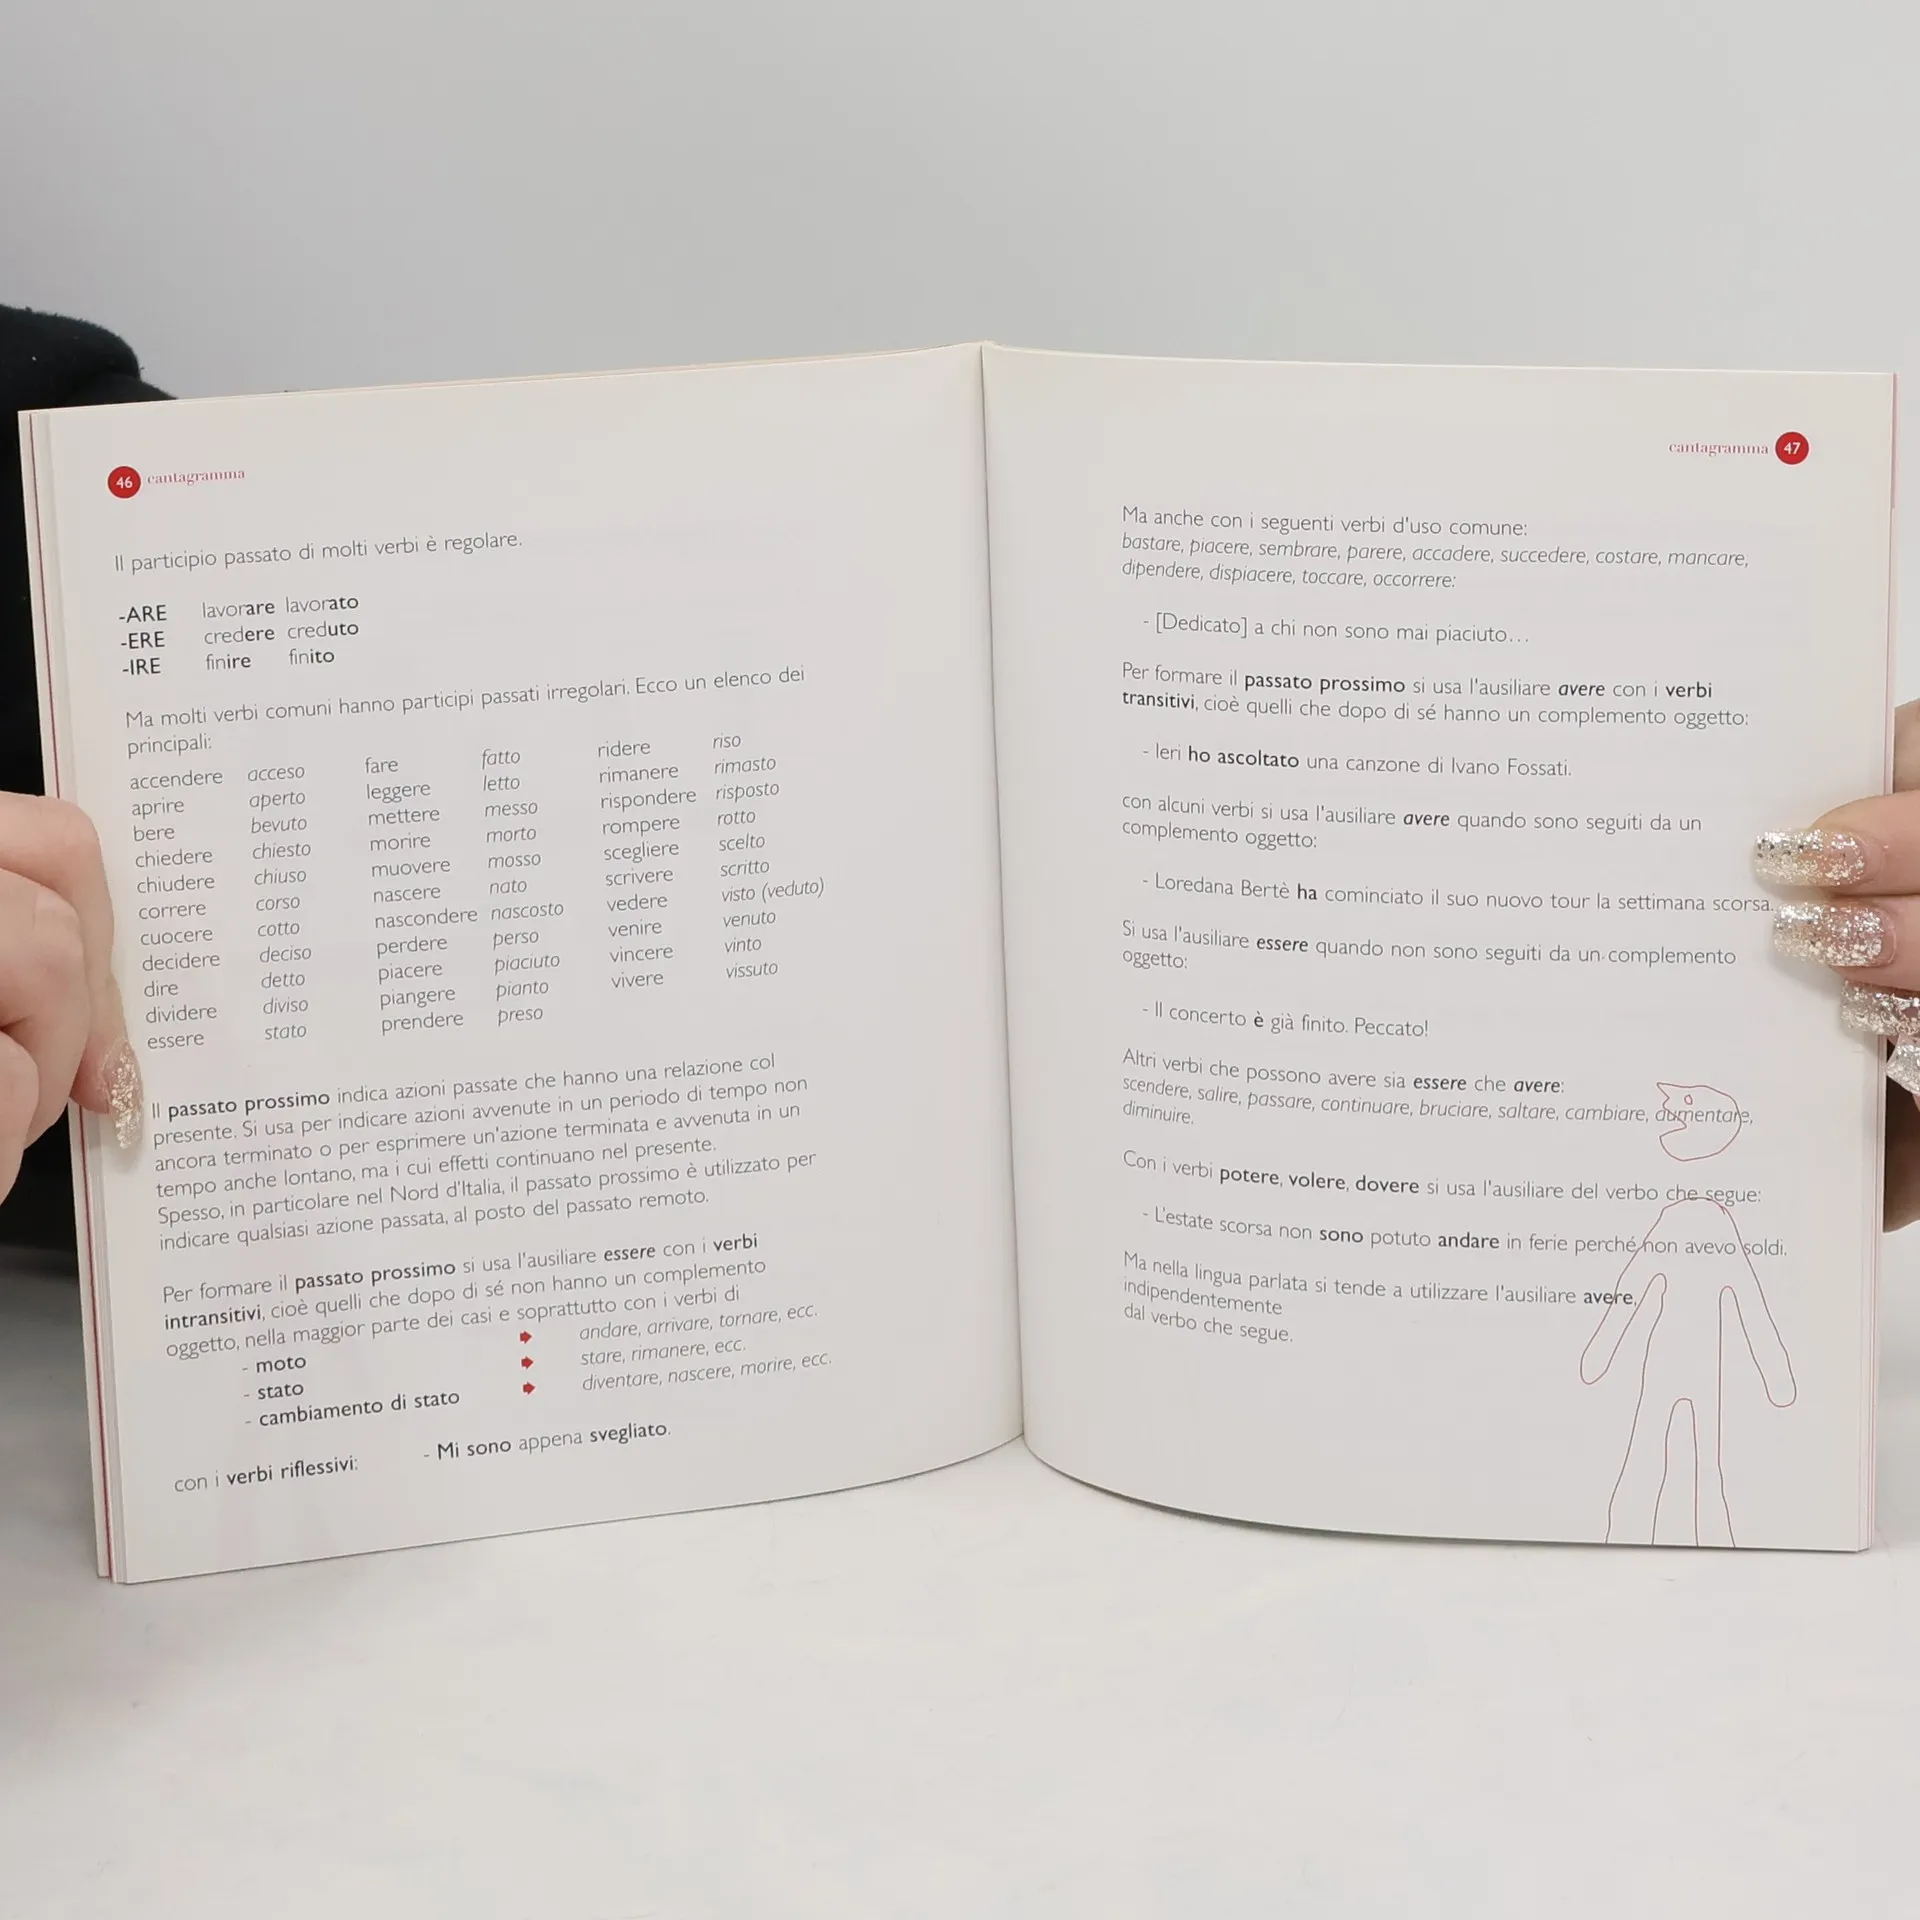 46 cantagramma
Il participio passato di molti verbi è regolare.
-ARE lavorare lavorato
-ERE credere creduto
-IRE finire finito
Ma molti verbi comuni hanno participi passati irregolari. Ecco un elenco dei
principali:
accendere acceso fare fatto ridere riso
aprire aperto leggere letto rimanere rimasto
bere bevuto mettere messo rispondere risposto
chiedere chiesto morire morto rompere rotto
chiudere chiuso muovere mosso scegliere scelto
correre corso nascere nato scrivere scritto
cuocere cotto nascondere nascosto vedere visto (veduto)
decidere deciso perdere perso venire venuto
dire detto piacere piaciuto vincere vinto
dividere diviso piangere pianto vivere vissuto
essere stato prendere preso
Il passato prossimo indica azioni passate che hanno una relazione col
presente. Si usa per indicare azioni avvenute in un periodo di tempo non
ancora terminato o per esprimere un'azione terminata e avvenuta in un
tempo anche lontano, ma i cui effetti continuano nel presente.
Spesso, in particolare nel Nord d'Italia, il passato prossimo è utilizzato per
indicare qualsiasi azione passata, al posto del passato remoto.
Per formare il passato prossimo si usa l'ausiliare essere con i verbi
intransitivi, cioè quelli che dopo di sé non hanno un complemento
oggetto, nella maggior parte dei casi e soprattutto con i verbi di
- moto andare, arrivare, tornare, ecc.
- stato stare, rimanere, ecc.
- cambiamento di stato diventare, nascere, morire, ecc.
con i verbi riflessivi: - Mi sono appena svegliato.
cantagramma 47
Ma anche con i seguenti verbi d'uso comune:
bastare, piacere, sembrare, parere, accadere, succedere, costare, mancare,
dipendere, dispiacere, toccare, occorrere:
- [Dedicato] a chi non sono mai piaciuto...
Per formare il passato prossimo si usa l'ausiliare avere con i verbi
transitivi, cioè quelli che dopo di sé hanno un complemento oggetto:
- Ieri ho ascoltato una canzone di Ivano Fossati.
con alcuni verbi si usa l'ausiliare avere quando sono seguiti da un
complemento oggetto:
- Loredana Bertè ha cominciato il suo nuovo tour la settimana scorsa.
Si usa l'ausiliare essere quando non sono seguiti da un complemento
oggetto:
- Il concerto è già finito. Peccato!
Altri verbi che possono avere sia essere che avere:
scendere, salire, passare, continuare, bruciare, saltare, cambiare, aumentare,
diminuire.
Con i verbi potere, volere, dovere si usa l'ausiliare del verbo che segue:
- L'estate scorsa non sono potuto andare in ferie perché non avevo soldi.
Ma nella lingua parlata si tende a utilizzare l'ausiliare avere,
indipendentemente
dal verbo che segue.